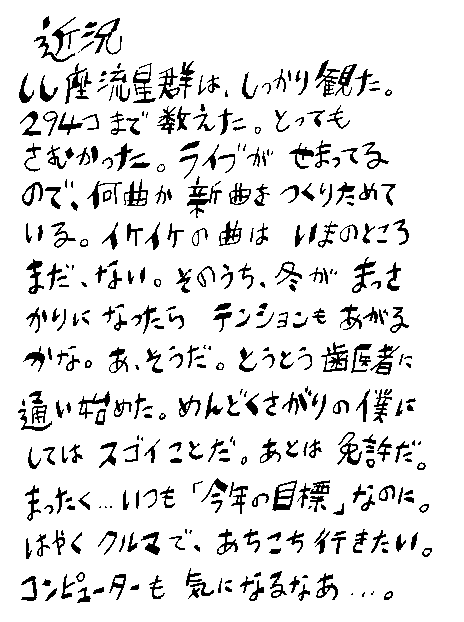 近況
しし座流星群は、しっかり観た。
294コまで数えた。とっても
さむかった。ライブがせまってる
ので、何曲か新曲をつくりためて
いる。イケイケの曲はいまのところ
まだ、ない。そのうち、冬がまっさ
かりになったらテンションもあがる
かな。あ、そうだ。とうとう歯医者に
通い始めた。めんどくさがりの僕に
してはスゴイことだ。あとは免許だ。
まったく…いつも「今年の目標」なのに。
はやくクルマで、あちこち行きたい。
コンピューターも気になるなあ…。